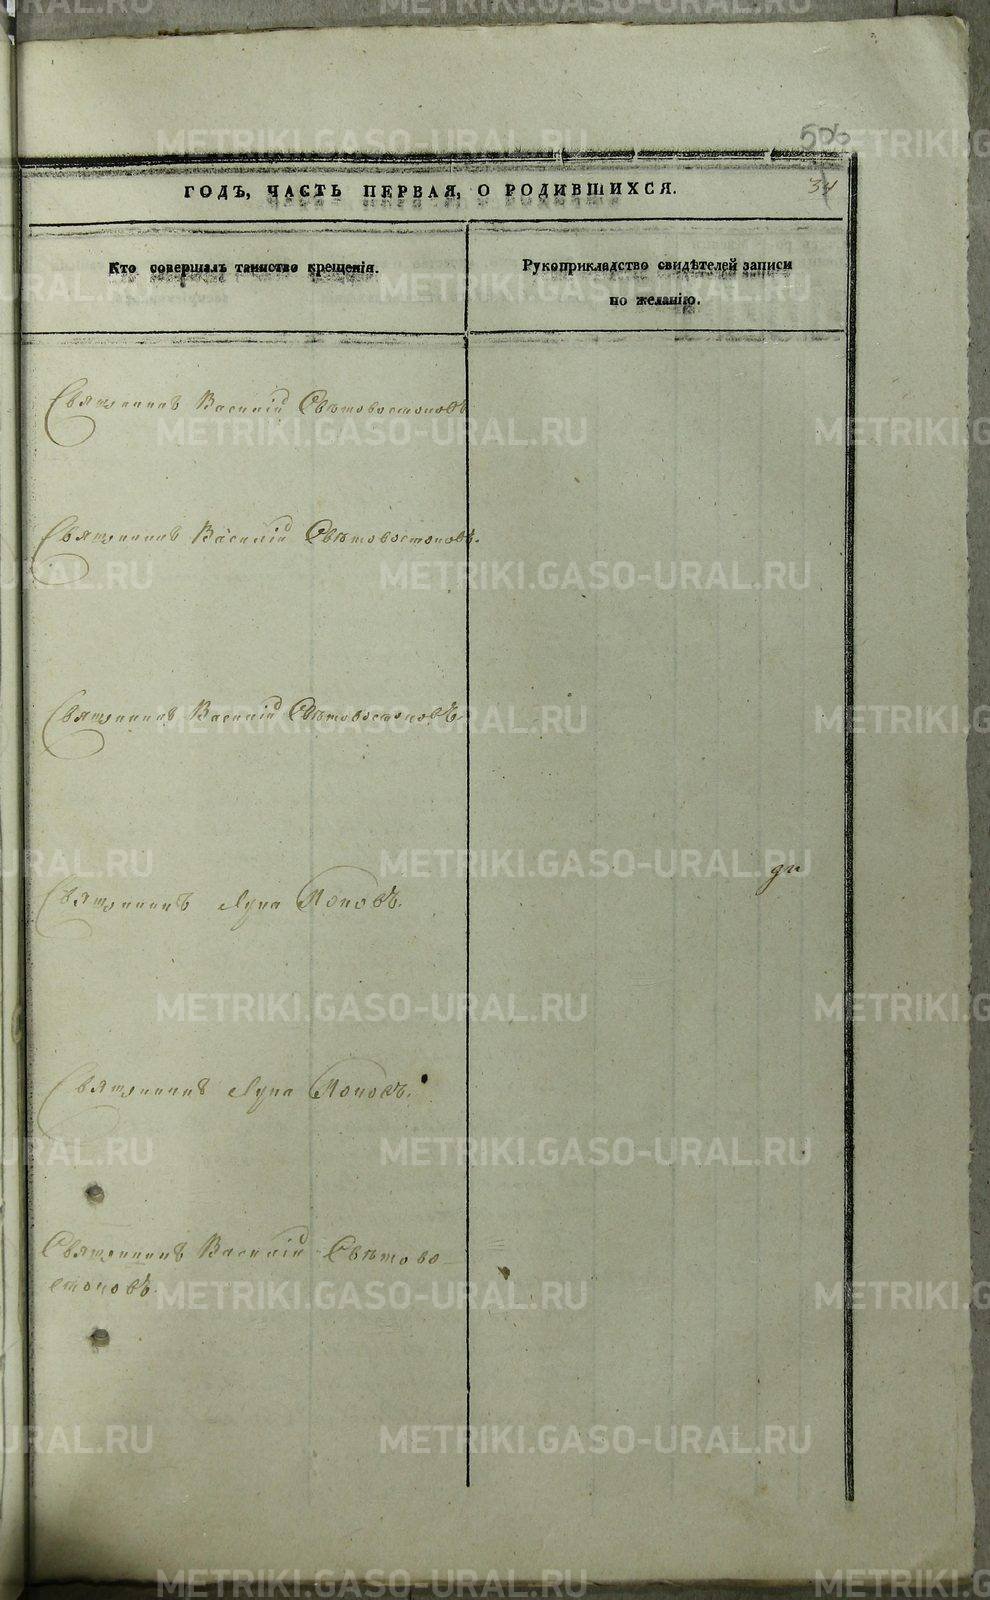 506
34
ГОДЪ, ЧАСТЬ ПЕРВАЯ, О РОДИВШИХСЯ.
Кто совершалъ таинство крещенія.
Рукоприкладство свидѣтелей записи
по желанію.
Священникъ Василій Свѣтовостоковъ
Священникъ Василій Свѣтовостоковъ.
Священникъ Василій Свѣтовостоковъ
Священникъ Лука Поповъ.
Священникъ Лука Поповъ.
Священникъ Василій Свѣтово-
стоковъ.
METRIKI.GASO-URAL.RU